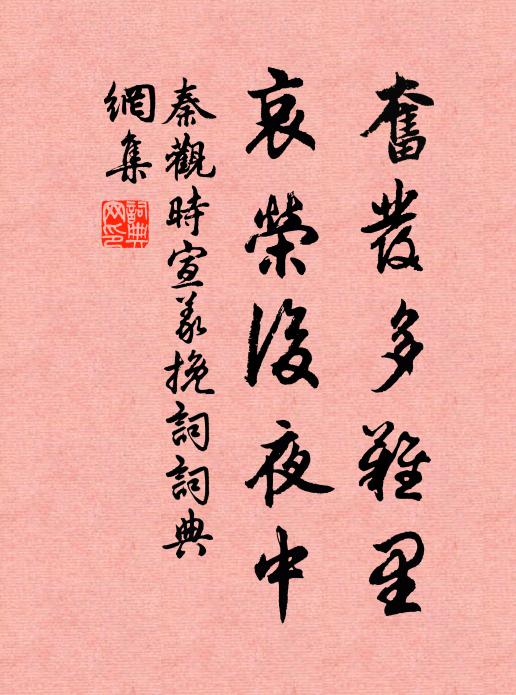 奮發多難里
哀榮後夜中
秦觀時宣義挽詞詞典
網集
詞典網印